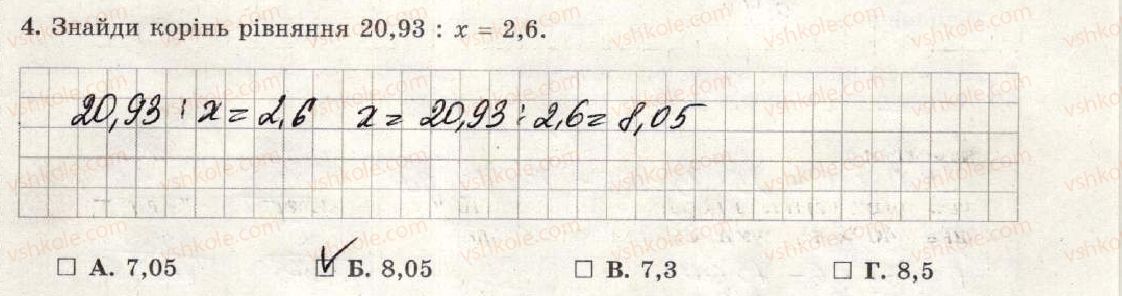 4. Знайди корінь рівняння 20,93 : x = 2,6.
20,93 : x = 2,6 x = 20,93 : 2,6 = 8,05
☐ А. 7,05 ☑ Б. 8,05 ☐ В. 7,3 ☐ Г. 8,5
vshkole.com